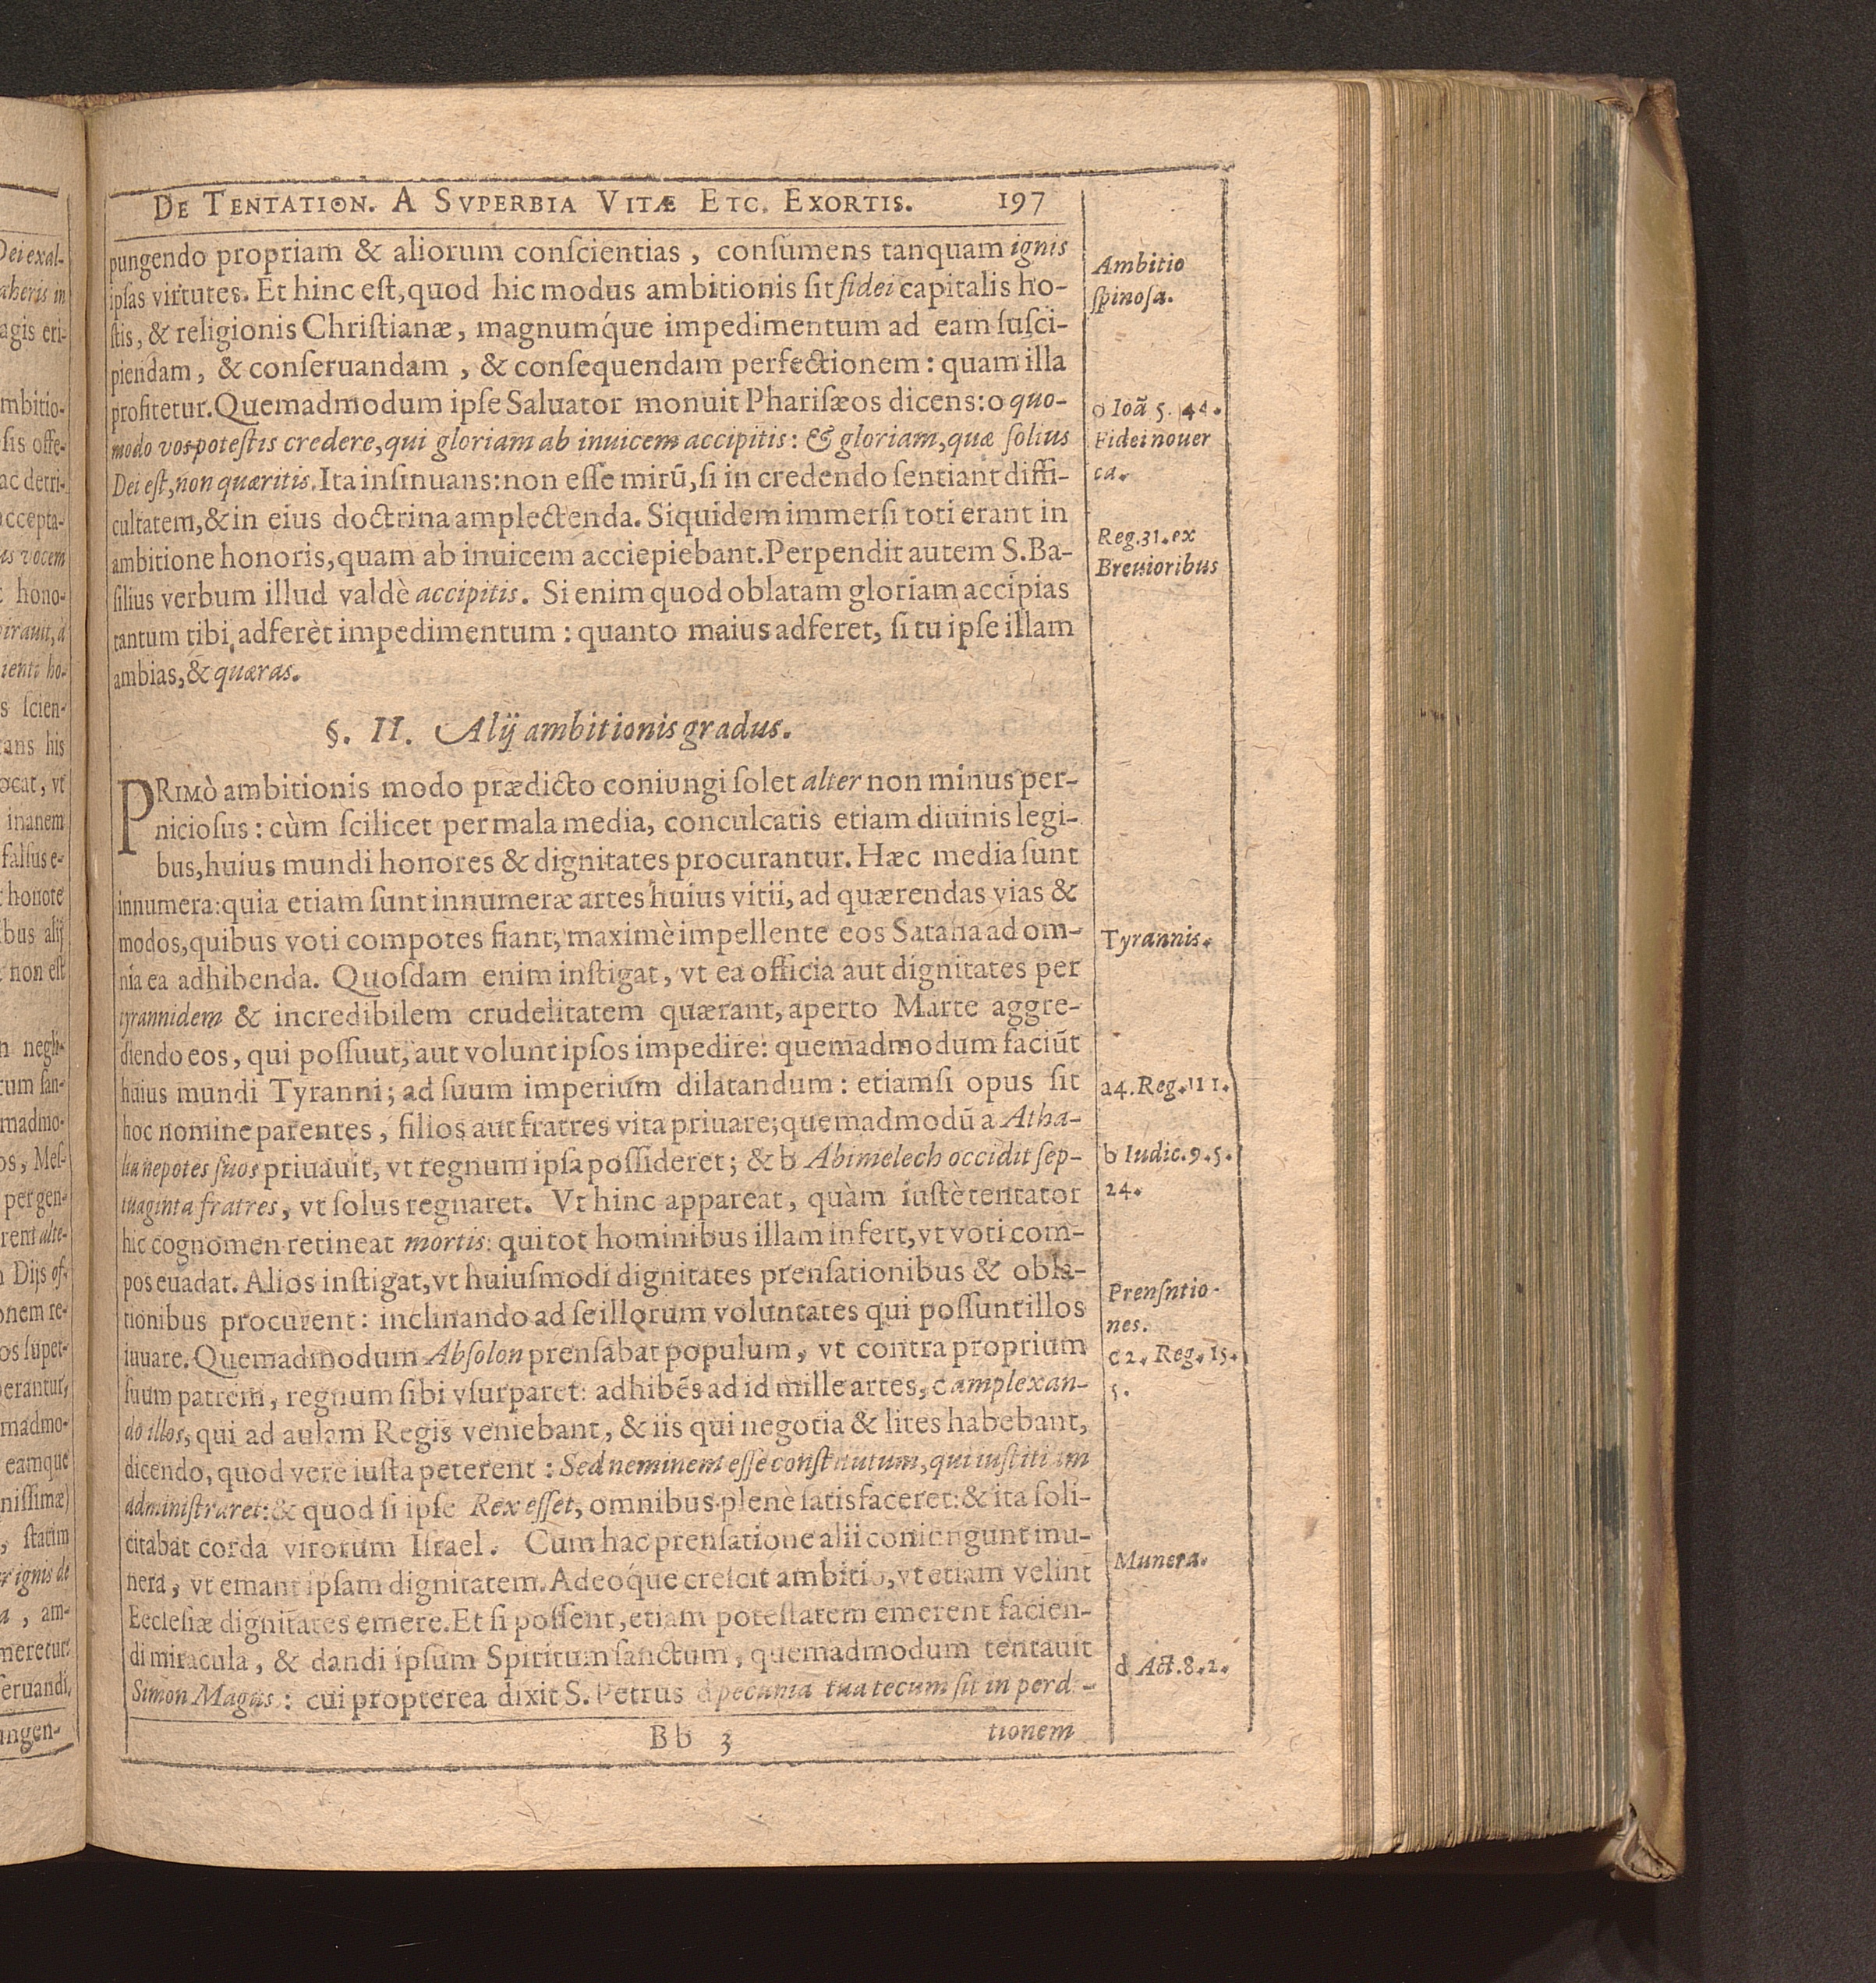 DE TENTATION. A SVPERBIA VITÆ ETC. EXORTIS. 197
pungendo propriam & aliorum conſcientias, conſumens tanquam ignis
ipſas virtutes. Et hinc eſt, quod hic modus ambitionis ſit fidei capitalis ho-
ſtis, & religionis Chriſtianæ, magnumq́ue impedimentum ad eam ſuſci-
piendam, & conſeruandam, & conſequendam perfectionem: quam illa
profitetur. Quemadmodum ipſe Saluator monuit Phariſæos dicens: o quo-
modo vos poteſtis credere, qui gloriam ab inuicem accipitis: & gloriam, quæ ſolius
Dei eſt, non quæritis. Ita inſinuans: non eſſe mirū, ſi in credendo ſentiant diffi-
cultatem, & in eius doctrina amplectenda. Siquidem immerſi toti erant in
ambitione honoris, quam ab inuicem acciepiebant. Perpendit autem S. Ba-
ſilius verbum illud valdè accipitis. Si enim quod oblatam gloriam accipias
tantum tibi adferèt impedimentum: quanto maius adferet, ſi tu ipſe illam
ambias, & quæras.
§. II. Alij ambitionis gradus.
PRIMÒ ambitionis modo prædicto coniungi ſolet alter non minus per-
nicioſus: cùm ſcilicet per mala media, conculcatis etiam diuinis legi-
bus, huius mundi honores & dignitates procurantur. Hæc media ſunt
innumera: quia etiam ſunt innumeræ artes huius vitii, ad quærendas vias &
modos, quibus voti compotes fiant, maximè impellente eos Satana ad om-
nia ea adhibenda. Quoſdam enim inſtigat, vt ea officia aut dignitates per
tyrannidem & incredibilem crudelitatem quærant, aperto Marte aggre-
diendo eos, qui poſſuut, aut volunt ipſos impedire: quemadmodum faciūt
huius mundi Tyranni; ad ſuum imperium dilatandum: etiamſi opus ſit
hoc nomine parentes, filios aut fratres vita priuare; quemadmodū a Atha-
lia nepotes ſuos priuauit, vt regnum ipſa poſſideret; & b Abimelech occidit ſep-
tuaginta fratres, vt ſolus regnaret. Vt hinc appareat, quàm iuſtè tentator
hic cognomen retineat mortis: qui tot hominibus illam infert, vt voti com-
pos euadat. Alios inſtigat, vt huiuſmodi dignitates prenſationibus & obla-
tionibus procurent: inclinando ad ſe illorum voluntates qui poſſunt illos
iuuare. Quemadmodum Abſolon prenſabat populum, vt contra proprium
ſuum patrem, regnum ſibi vſurparet: adhibēs ad id mille artes, c amplexan-
do illos, qui ad aulam Regis veniebant, & iis qui negotia & lites habebant,
dicendo, quod vere iuſta peterent: Sed neminem eſſe conſtitutum, qui iuſtitiam
adminiſtraret: & quod ſi ipſe Rex eſſet, omnibus plenè ſatisfaceret: & ita ſoli-
citabat corda virorum Iſrael. Cum hac prenſatione alii coniungunt mu-
nera, vt emant ipſam dignitatem. Adeóque creſcit ambitio, vt etiam velint
Eccleſiæ dignitates emere. Et ſi poſſent, etiam poteſtatem emerent facien-
di miracula, & dandi ipſum Spiritum ſanctum, quemadmodum tentauit
Simon Magus: cui propterea dixit S. Petrus d pecunia tua tecum ſit in perdi-
Bb 3 tionem
Ambitio
ſpinoſa.
o Ioā 5. 44.
Fidei nouer
ca.
Reg. 31. ex
Breuioribus
Tyrannis.
a 4. Reg. 11 1.
b Iudic. 9. 5.
24.
Prenſntio-
nes.
c 2. Reg. 15.
5.
Munera.
d Act. 8. 2.
Dei exal-
agis eri-
mbitio-
ſis offe-
ac detri-
accepta-
as vocem
hono-
irauit, à
ienti ho-
s ſcien-
rans his
ocat, vt
inanem
falſus e-
honore
bus alij
non eſt
negli-
rum ſan-
madmo-
os, Meſ-
per gen-
rem alte-
Dijs of-
onem re-
os ſuper-
erantur,
madmo-
eamque
niſſimæ)
, ſtatim
ignis de
a, am-
meretur:
ſeruandi,
ungen-